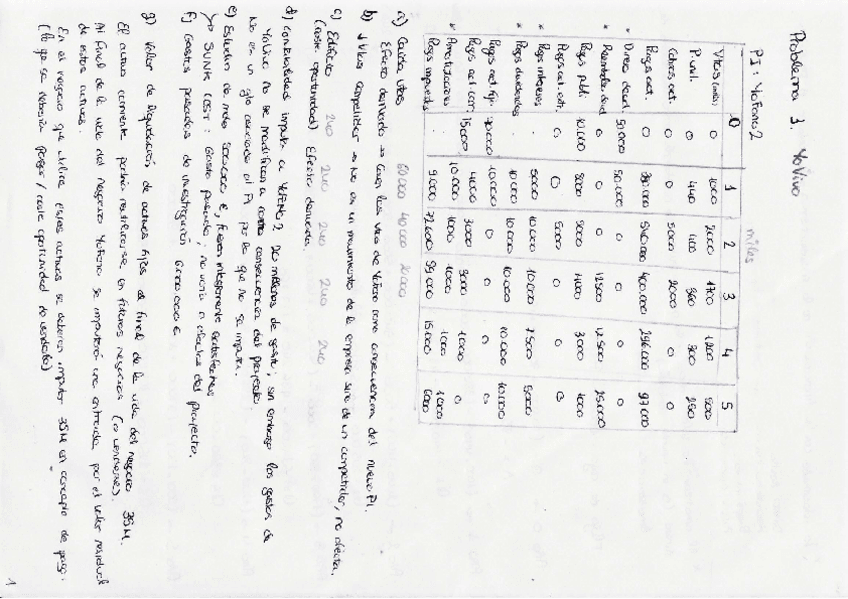 Problema 1. YoVivo
PI: YoFono2
miles
0 1 2 3 4 5
Vtas (uds) 0 1000 2000 1700 1200 500
P. unit. 0 440 400 360 300 250
Cobros act. 0 0 5000 2000 0 0
Pagos act. 0 390.000 540.000 400.000 296.000 97.000
* Dispos. deud. 50.000 50.000 0 0 0
* Reembolso deud 0 0 0 12.500 12.500 25.000
Pagos publi. 10.000 8000 5000 4000 3000 1000
Pagos act. ext. 0 5000 0 0 0
* Pagos intereses 5000 10.000 10.000 7.500 5000
* Pagos dividendos 10.000 10.000 10.000 10.000 10.000
Pagos act. fijo 90.000 10.000 0 0 0 0
Pagos act. corr. 15.000 4000 3000 3000 1000 0
* Amortizaciones 10.000 1000 1000 1000 1000
Pagos impuestos 9.000 72.600 59.000 15.000 6000
a) Caída vtas 60.000 40.000 20.000
Efecto derivado → Caen las vtas de YoFono como consecuencia del nuevo PI.
b) ↓ Vtas competidor → No es un movimiento de la empresa sino de un competidor, no afecta.
c) Edificio 240 240 240 240 240
(coste oportunidad) Efecto derivado.
d) Contabilidad imputa a YoFONO 2 20 millones de gasto, sin embargo los gastos de
YoVivo no se modifican como consecuencia del proyecto
No es un gto asociado al PI por lo que no se imputa.
e) Estudios de mdo 500.000 €, fueron
↳ SUNK COST: Gasto pasado, no varía a efectos del proyecto.
f) Gastos pasados de investigación 6.000.000 €
g) Valor de liquidación de activos fijos al final de la vida del negocio 35 M.
El activo corriente podría reutilizarse en futuros negocios (no venderse).
Al final de la vida del negocio YoFono se imputará una entrada por el valor residual
de estos activos.
En el negocio que utilice estos activos se deberían imputar 35M en concepto de pago.
(lo que se debería pagar / coste oportunidad no venderlo)
1